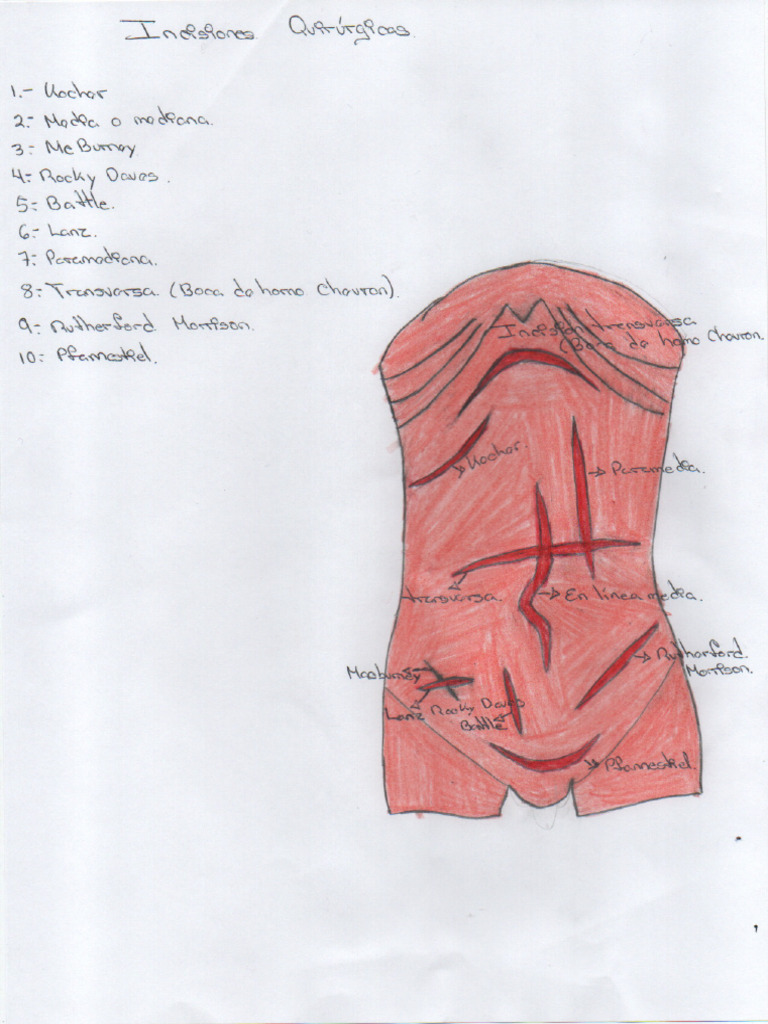 Incisiones Quirúrgicas.
1.- Kocher
2.- Media o mediana.
3.- McBurney
4.- Rocky Daves.
5.- Battle.
6.- Lanz.
7.- Paramediana.
8.- Transversa. (Boca de horno Chevron).
9.- Rutherford Morrison.
10.- Pfanestiel.
Incision transversa
(Boca de horno Chevron.
Kocher.
Paramedia.
transversa.
En línea media.
Macburney
Rutherford.
Morrison.
Lanz
Rocky Daves
Battle
Pfanestiel.